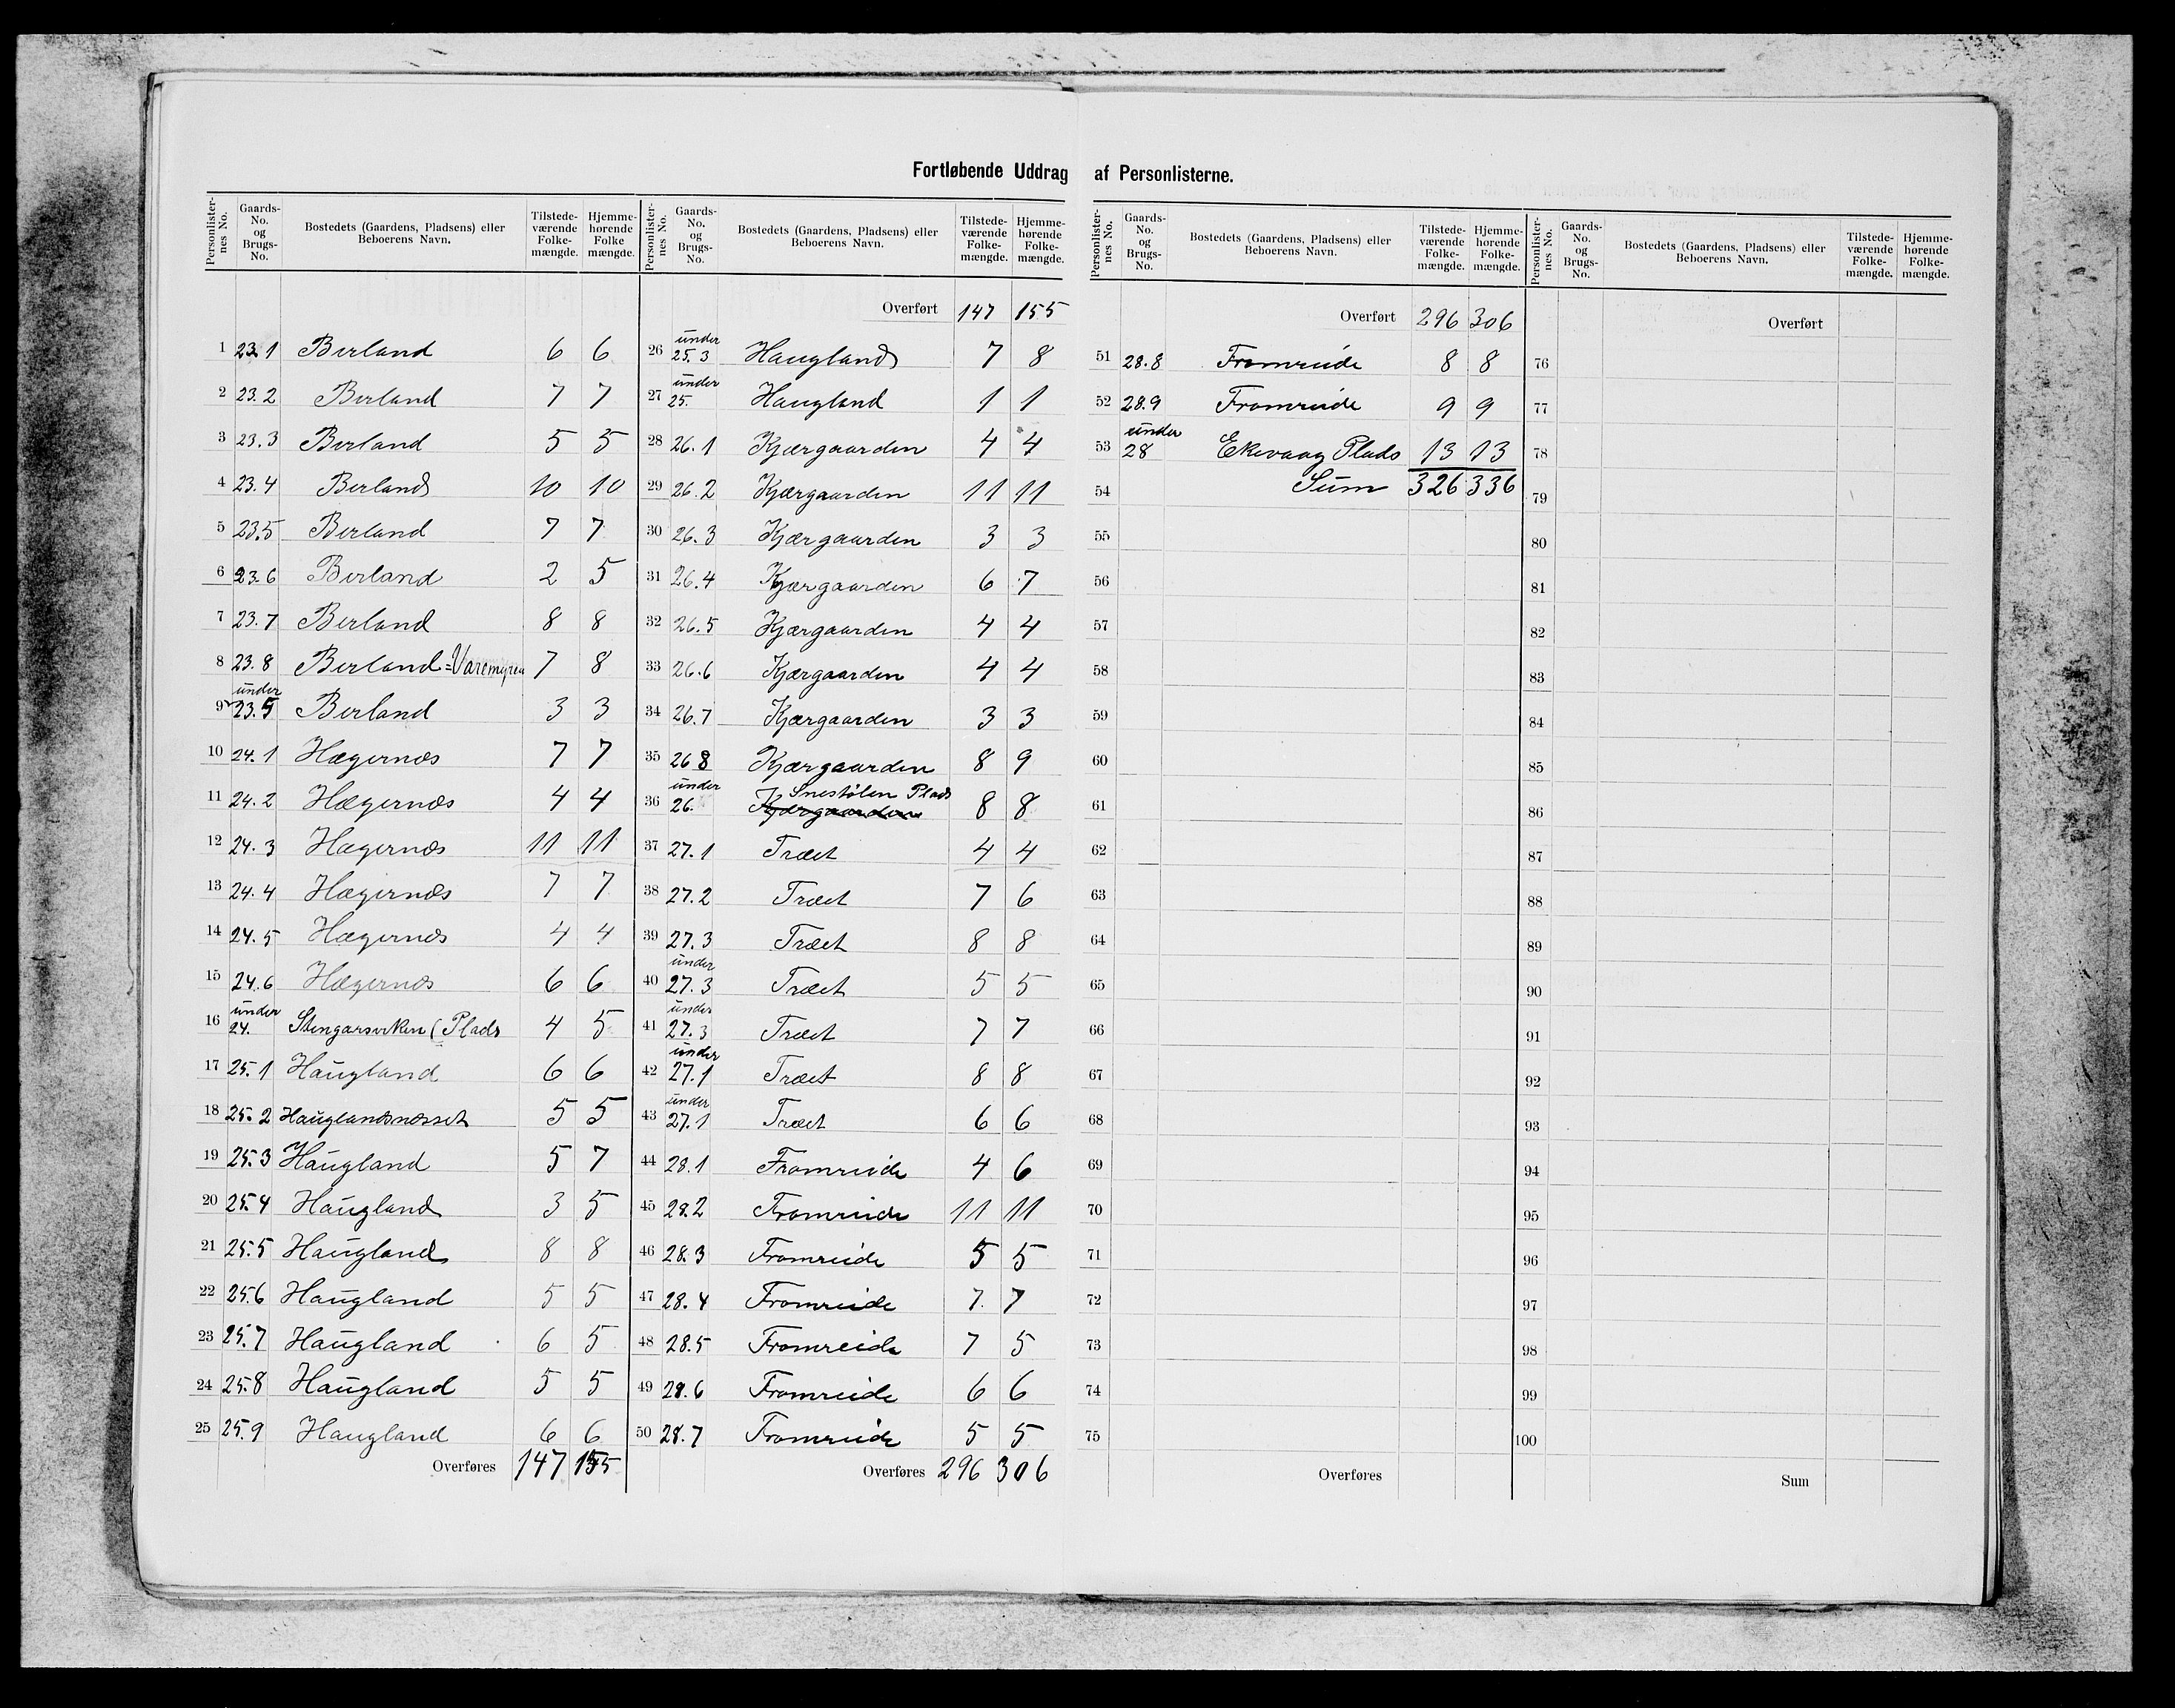 Fortløbende Uddrag af Personlisterne.
Personlister-nes No. Gaards-No. og Brugs-No. Bostedets (Gaardens, Pladsens) eller Beboerens Navn. Tilstede-værende Folke-mængde. Hjemme-hørende Folke mængde.
1 23.1 Birland 6 6
2 23.2 Birland 7 7
3 23.3 Birland 5 5
4 23.4 Birland 10 10
5 23.5 Birland 7 7
6 23.6 Birland 2 5
7 23.7 Birland 8 8
8 23.8 Birland=Varemyren 7 8
9 under 23.5 Birland 3 3
10 24.1 Hægernæs 7 7
11 24.2 Hægernæs 4 4
12 24.3 Hægernæs 11 11
13 24.4 Hægernæs 7 7
14 24.5 Hægernæs 4 4
15 24.6 Hægernæs 6 6
16 under 24. (Plads 4 5
17 25.1 Haugland 6 6
18 25.2 Hauglandsnæsset 5 5
19 25.3 Haugland 5 7
20 25.4 Haugland 3 5
21 25.5 Haugland 8 8
22 25.6 Haugland 5 5
23 25.7 Haugland 6 5
24 25.8 Haugland 5 5
25 25.9 Haugland 6 6
Overføres 147 155
Personlister-nes No. Gaards-No. og Brugs-No. Bostedets (Gaardens, Pladsens) eller Beboerens Navn. Tilstede-værende Folke-mængde. Hjemme-hørende Folke-mængde.
Overført 147 155
26 under 25.3 Haugland 7 8
27 under 25. Haugland 1 1
28 26.1 Kjærgaarden 4 4
29 26.2 Kjærgaarden 11 11
30 26.3 Kjærgaarden 3 3
31 26.4 Kjærgaarden 6 7
32 26.5 Kjærgaarden 4 4
33 26.6 Kjærgaarden 4 4
34 26.7 Kjærgaarden 3 3
35 26 8 Kjærgaarden 8 9
36 under 26. Snestølen Plads Kjærgaarden 8 8
37 27.1 Træet 4 4
38 27.2 Træet 7 6
39 27.3 Træet 8 8
40 under 27.3 Træet 5 5
41 under 27.3 Træet 7 7
42 under 27.1 Træet 8 8
43 under 27.1 Træet 6 6
44 28.1 Fromreide 4 6
45 28.2 Fromreide 11 11
46 28.3 Fromreide 5 5
47 28.4 Fromreide 7. 7
48 28.5 Fromreide 7 5
49 28.6 Fromreide 6 6
50 28.7 Fromreide 5 5
Overføres 296 306
Personlister-nes No. Gaards-No. og Brugs-No. Bostedets (Gaardens, Pladsens) eller Beboerens Navn. Tilstede-værende Folke-mængde. Hjemme-hørende Folke-mængde.
Overført 296 306
51 28.8 Fromreide 8 8
52 28.9 Fromreide 9 9
53 under 28 Ekevaag Plads 13 13
54 Sum 326 336
55
56
57
58
59
60
61
62
63
64
65
66
67
68
69
70
71
72
73
74
75
Overføres
Personlister-nes No. Gaards-No. og Brugs-No. Bostedets (Gaardens, Pladsens) eller Beboerens Navn. Tilstede-værende Folke-mængde. Hjemme-hørende Folke-mængde.
Overført
76
77
78
79
80
81
82
83
84
85
86
87
88
89
90
91
92
93
94
95
96
97
98
99
100
Sum